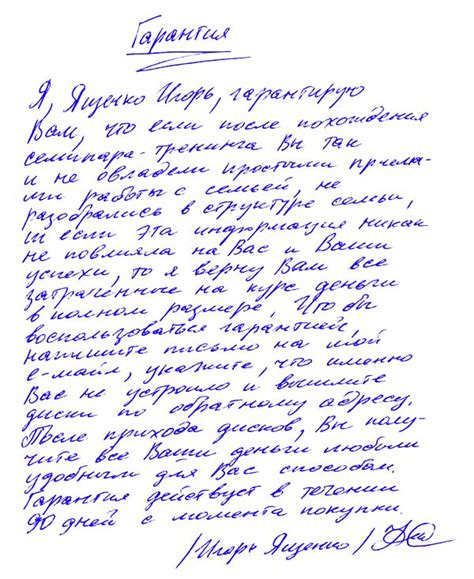 Гарантия
Я, Ященко Игорь, гарантирую
Вам, что если после похождения
семинара-тренинга Вы так
и не овладели простыми приема-
ми работы с семьей, не
разобрались в структуре семьи,
и если эта информация никак
не повлияла на Вас и Ваши
успехи, то я верну Вам все
затраченные на курс деньги
в полном размере. Что бы
воспользоваться гарантией,
напишите письмо на мой
е-майл, укажите, что именно
Вас не устроило и вышлите
диски по обратному адресу.
После прихода дисков, Вы полу-
чите все Ваши деньги любым
удобным для Вас способом.
Гарантия действует в течении
90 дней с момента покупки.
/Игорь Ященко/